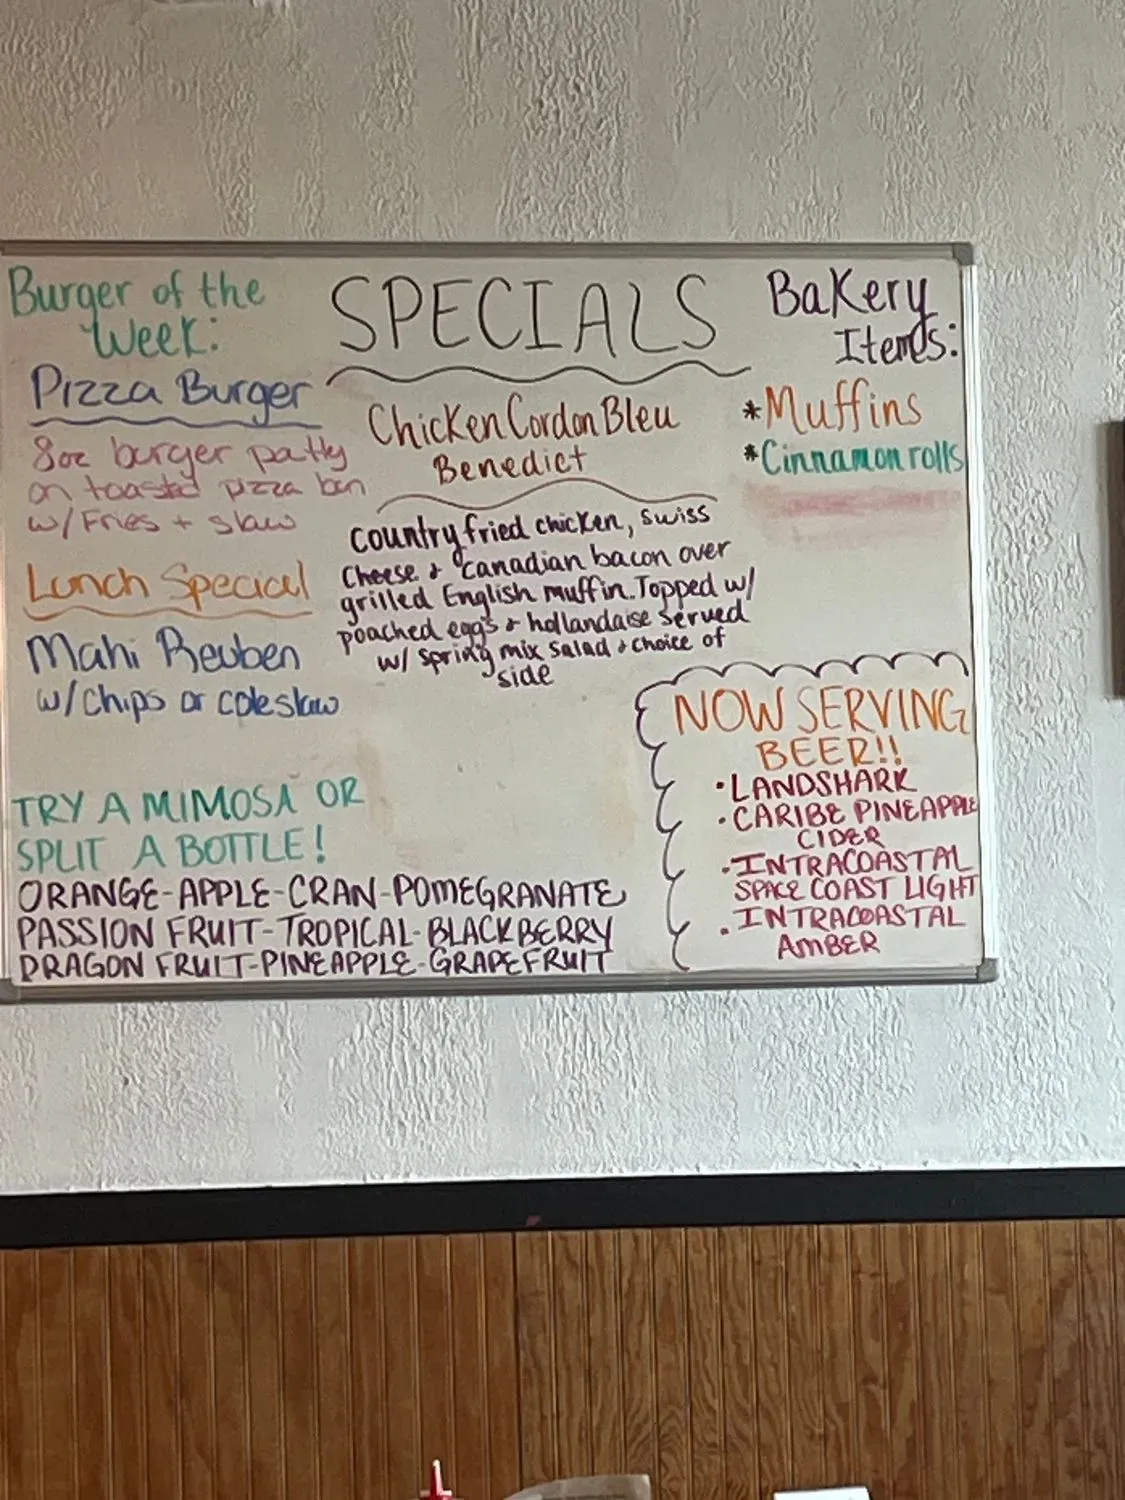 SPECIALS
Burger of the
Week:
Pizza Burger
8oz burger patty
on toasted pizza bun
w/ Fries + slaw
Lunch Special
Mahi Reuben
w/ Chips or coleslaw
Chicken Cordon Bleu
Benedict
country fried chicken, swiss
cheese & canadian bacon over
grilled English muffin. Topped w/
poached eggs & hollandaise served
w/ spring mix salad & choice of
side
Bakery
Items:
*Muffins
*Cinnamon rolls
NOW SERVING
BEER!!
• LANDSHARK
• CARIBE PINEAPPLE
CIDER
• INTRACOASTAL
SPACE COAST LIGHT
• INTRACOASTAL
AMBER
TRY A MIMOSA OR
SPLIT A BOTTLE!
ORANGE-APPLE-CRAN-POMEGRANATE
PASSION FRUIT-TROPICAL-BLACKBERRY
DRAGON FRUIT-PINEAPPLE-GRAPEFRUIT